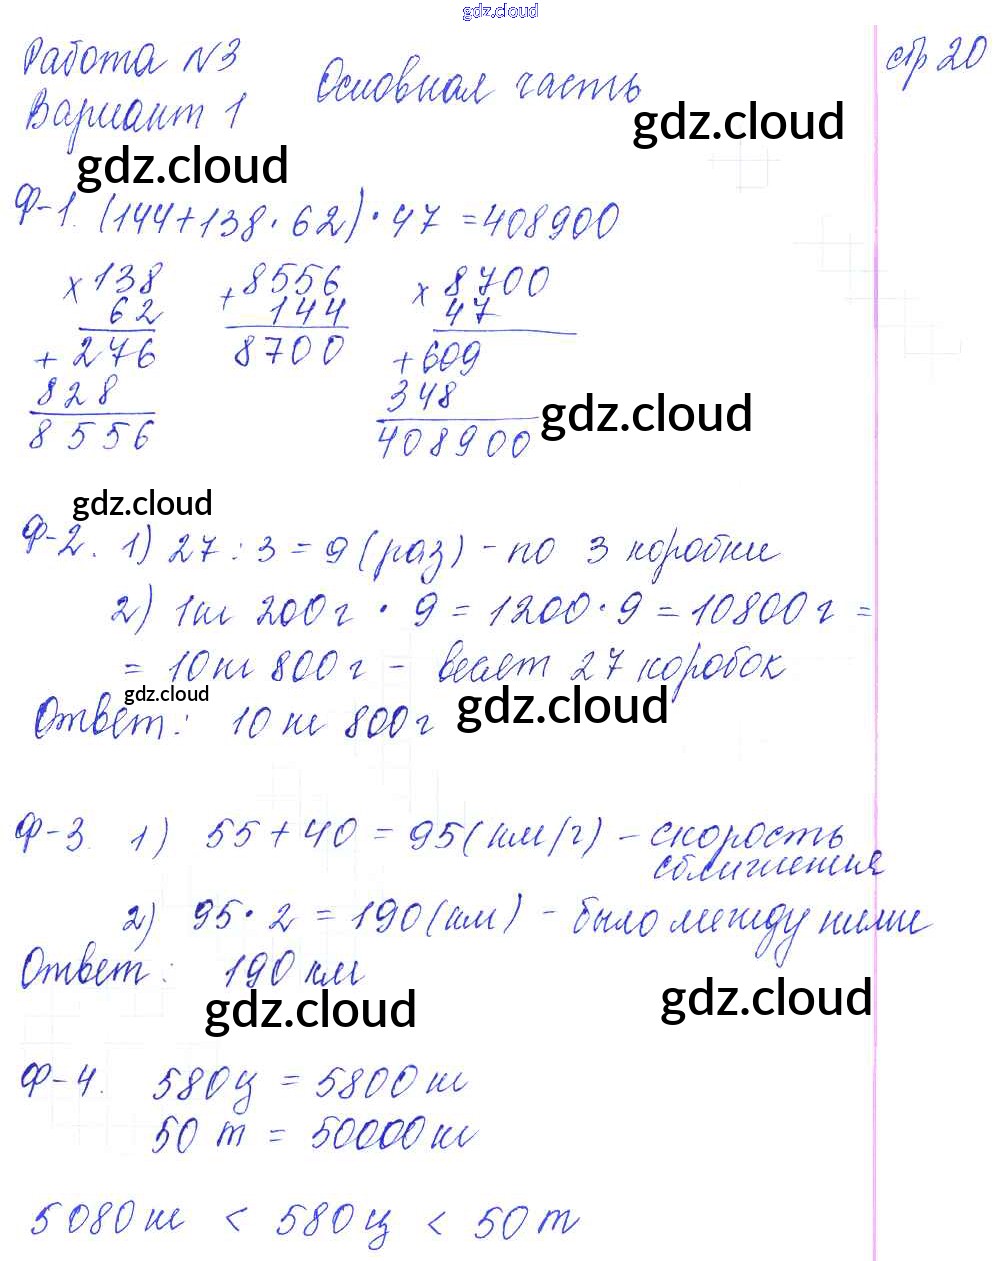 gdz.cloud
Работа №3
стр 20
Основная часть
Вариант 1
gdz.cloud
gdz.cloud
Ф-1. (144+138·62)·47=408900
×138 +8556 ×8700
62 144 47
+276 8700 +609
828 348
8556 408900
gdz.cloud
gdz.cloud
Ф-2. 1) 27:3=9(раз)-по 3 коробки
2) 1кг 200г · 9 = 1200·9=10800г =
= 10кг 800г - весят 27 коробок
gdz.cloud
Ответ: 10 кг 800г
gdz.cloud
Ф-3. 1) 55+40=95(км/ч) - скорость
сближения
2) 95·2=190(км) - было между ними
Ответ: 190 км
gdz.cloud
gdz.cloud
Ф-4. 580ц = 5800кг
50 т = 50000кг
5080кг < 580ц < 50т